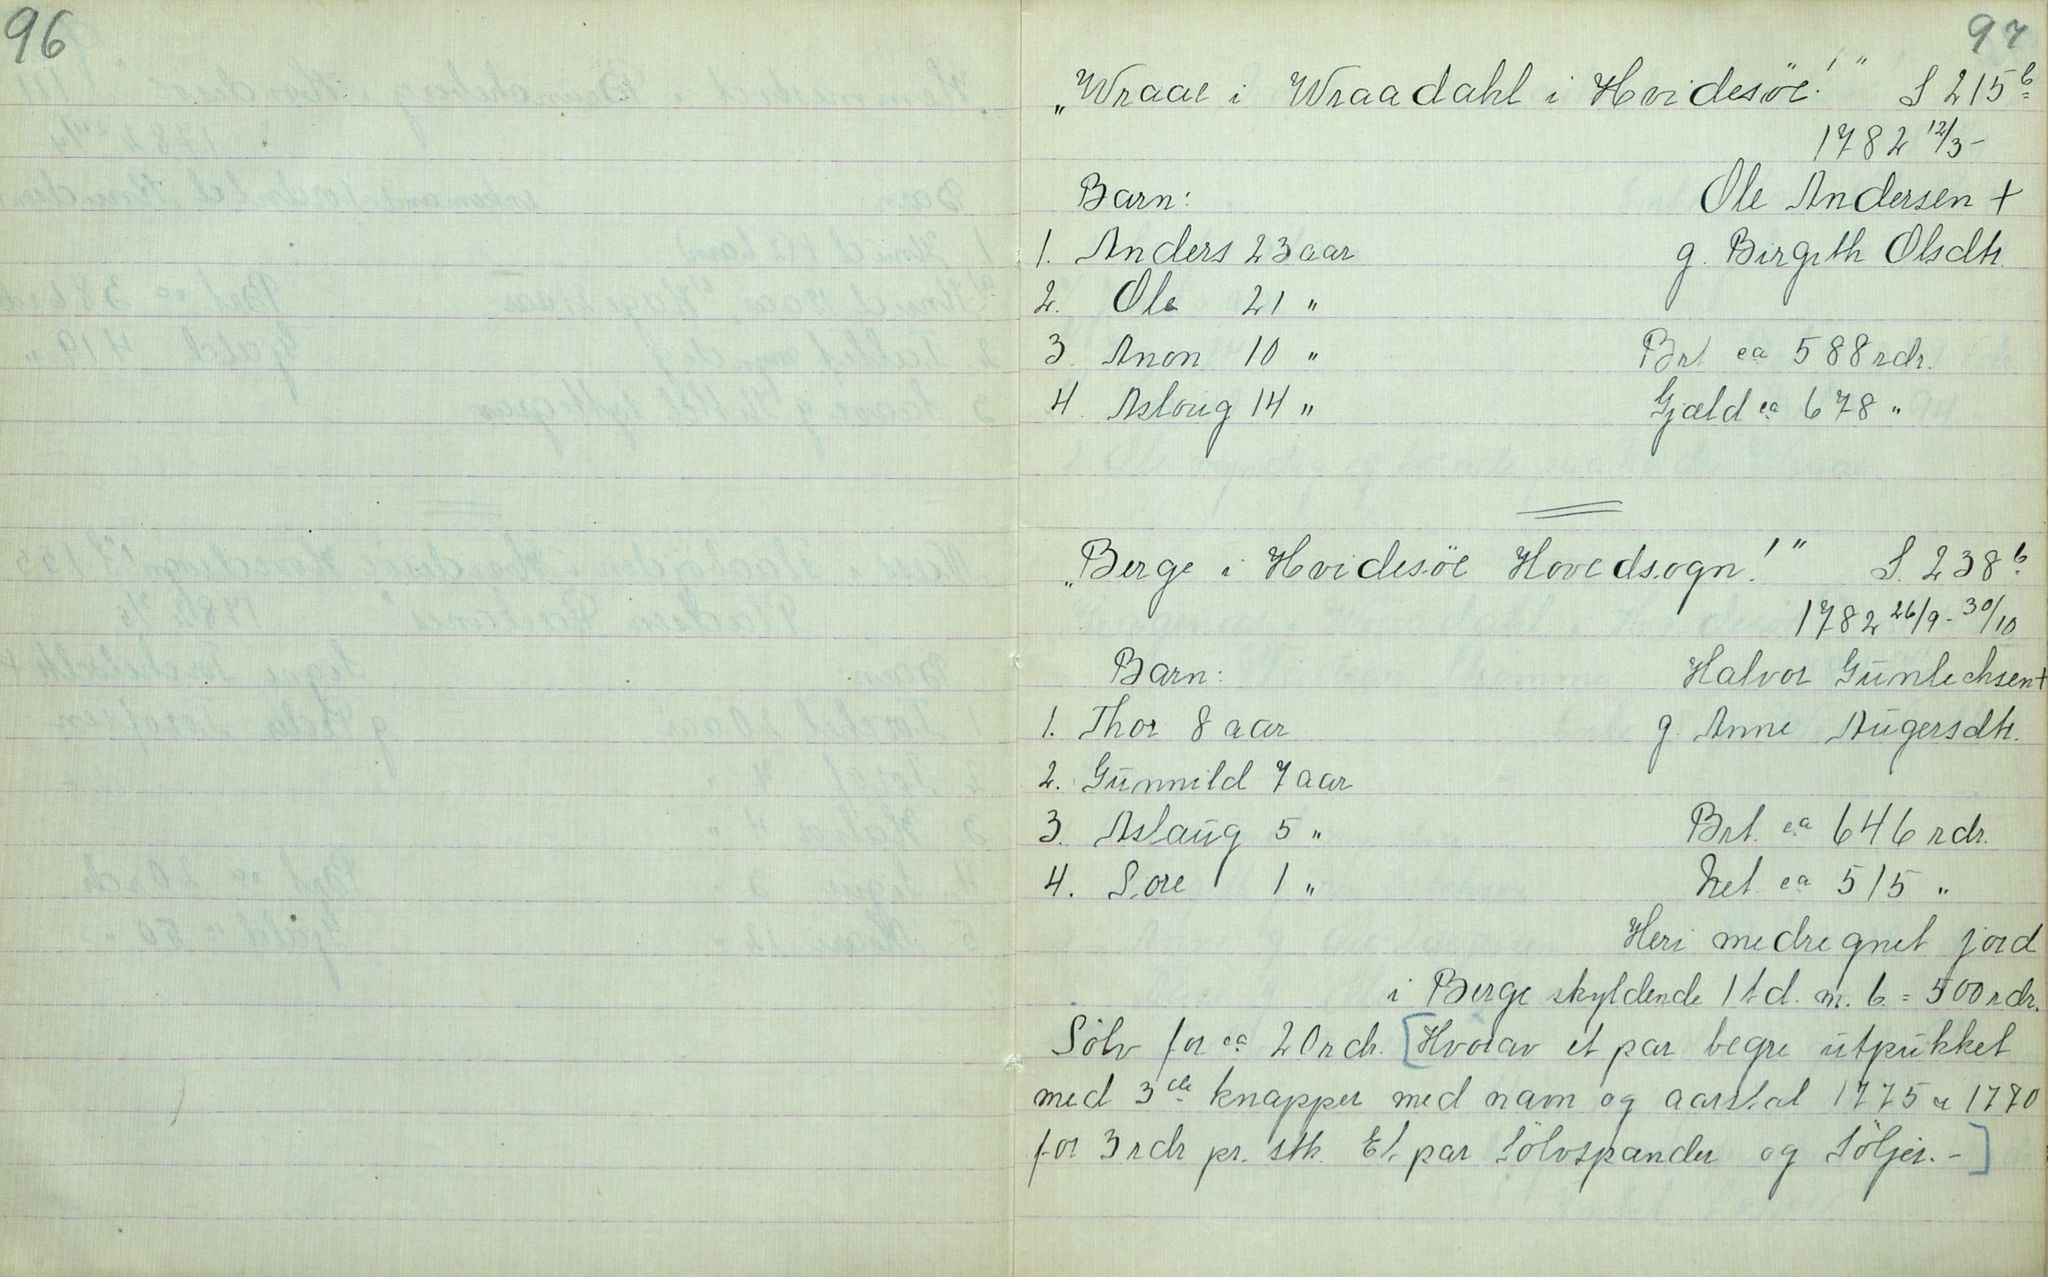 96
97
„Wraae i Wraadahl i Hvidesöe!" S 215b
1782 12/3-
Barn: Ole Andersen +
1. Anders 23 aar g. Birgith Olsdtr.
2. Ole 21 "
3. Anon 10 " Brt ca 588 rdr.
4. Asloug 14 " Gjæld ca 678 "
„Berge i Hvidesöe Hovedsogn!" S. 238b
1782 26/9 - 30/10
Barn: Halvor Gunlechsen +
1. Thor 8 aar g. Anne Augersdtr.
2. Gunnild 7 aar
3. Aslaug 5 " Brt. ca 646 rdr.
4. Sore 1 " Net. ca 515 "
Heri medregnet jord
i Berge skyldende 1 td. m. b. = 500 rdr.
Sölv for ca 20 rdr. [Hvorav et par begre utpukket
med 3de knapper med navn og aarstal 1775 1770
for 3 rdr pr. stk. Et par Sölvspander og Söljer. -]